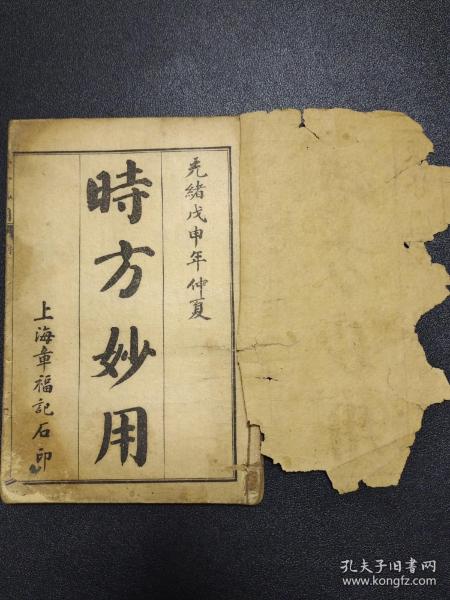 光緒戊申年仲夏
時方妙用
上海章福記石印
孔夫子旧书网
www.kongfz.com